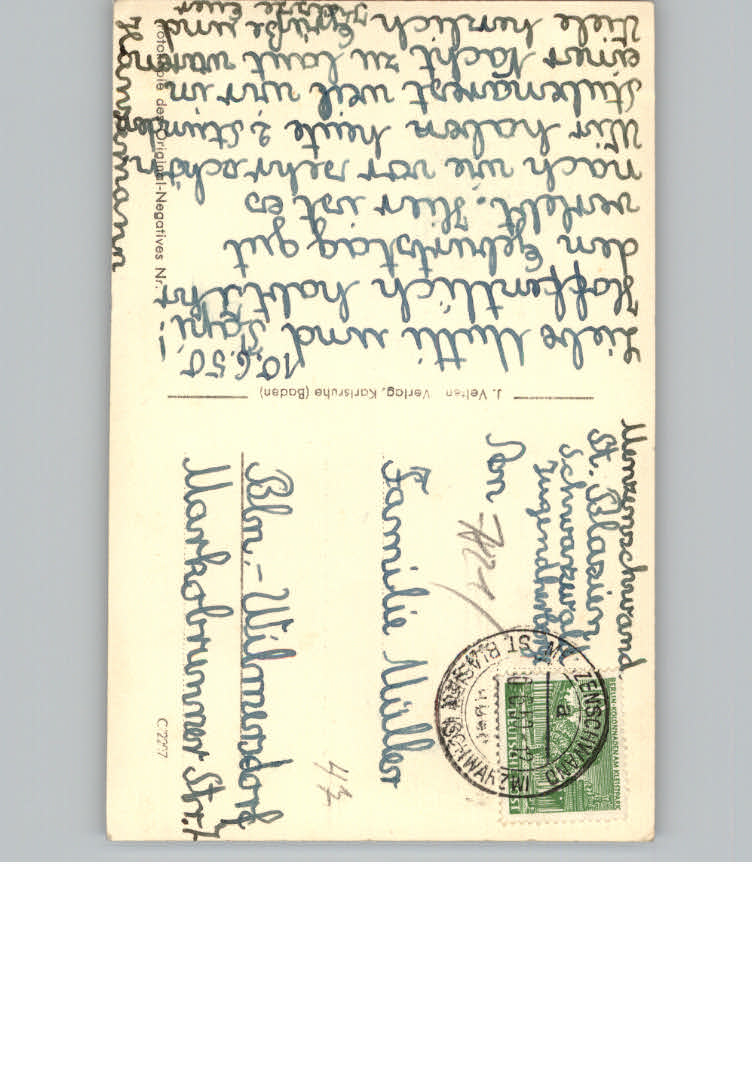 10.6.50.
Liebe Mutti und Papi!
Hoffentlich habt ihr
den Geburtstag gut
verlebt. Hier ist es
nach wie vor sehr schön
Wir haben heute 2 Stunden
Stubenarest weil wir in
einer Nacht zu laut waren
Viele herzlich Grüße und
Küsse Euer
Hansemann
Fotokopie des Original-Negatives Nr.
J. Velten Verlag, Karlsruhe (Baden)
Menzenschwand
St. Blasien
Schwarzwald
Jugendherb
Von
Familie Müller
Bln.-Wilmersdorf
Markobrunner Str. 1
C 2297
MENZENSCHWAND
ST. BLASIEN
(SCHWARZW)
a